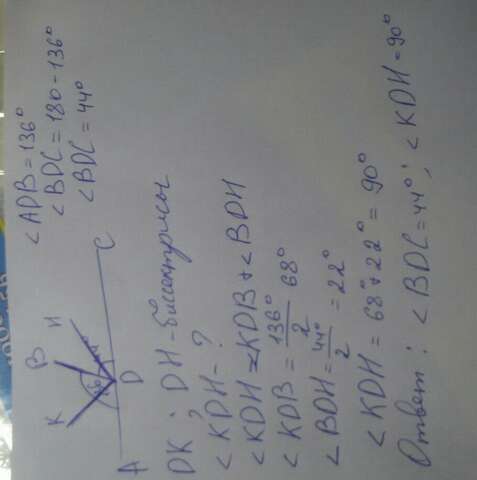 <ADB = 136°
<BDC = 180 - 136°
<BDC = 44°
K B H
136°
A D C
DK, DH - биссектрисы
<KDH - ?
<KDH = <KDB + <BDH
<KDB = 136° / 2 68°
<BDH = 44° / 2 = 22°
<KDH = 68° + 22° = 90°
Ответ: <BDC = 44°; <KDH = 90°